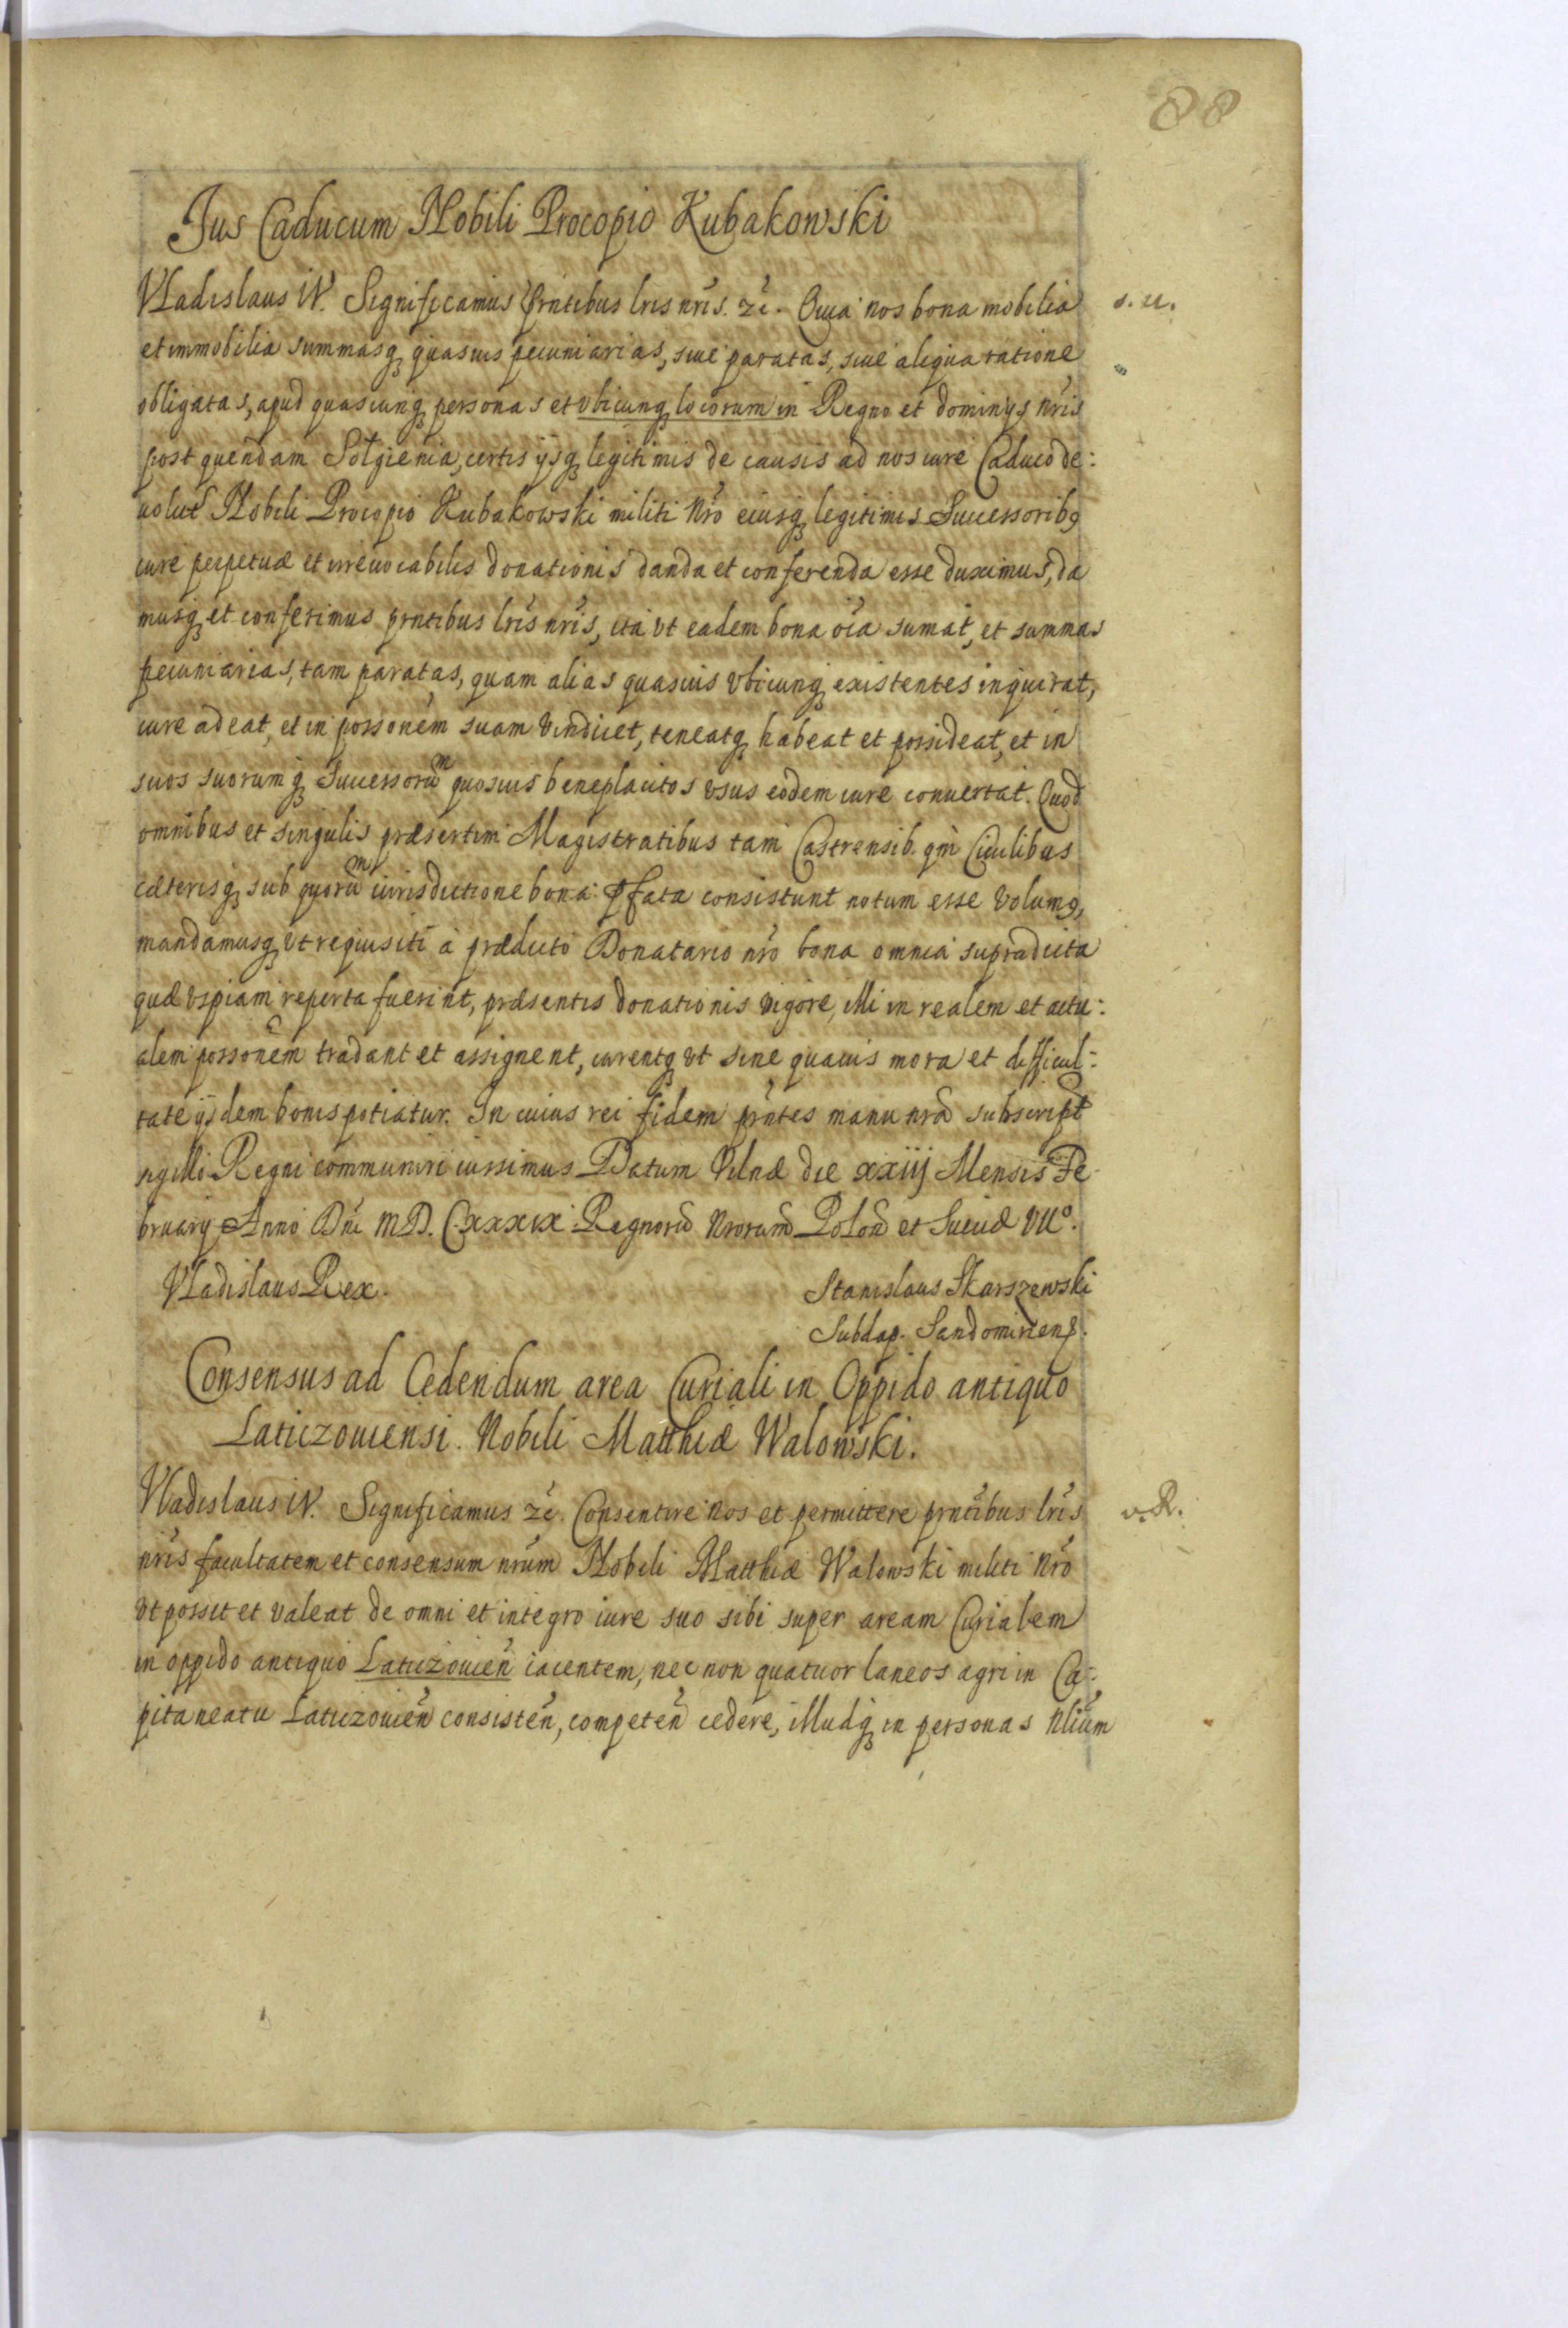 88
Jus Caducum Nobili Procopio Kubakowski
Vladislaus IV. Significamus prñtibus lris nr̃is. zc̃. Quia nos bona mobilia s. u.
et immobilia summasq́ quasuis pecuniarias, siue paratas, siue aliqua ratione
obligatas, apud quascunq́ personas et vbicunq́ locorum in Regno et dominijs nr̃is
post quendam Solgienia, certis ijsq́ legitimis de causis ad nos iure Caduco de:
uolut Nobili Procopio Kubakowski militi Nr̃o eiusq́ legitimis Successorib9
iure perpetuæ et irreuocabilis donationis danda et conferenda esse duximus, da
musq́ et conferimus prñtibus lr̃is nr̃is, ita vt eadem bona oĩa sumat, et summas
pecuniarias, tam paratas, quam alias quasuis vbicunq́ existentes inquirat,
iure adeat, et in possonẽm suam vindicet, teneatq́ habeat et possideat, et in
suos suorumq́ Successorũm quosuis beneplacitos vsus eodem iure conuertat. Quod
omnibus et singulis præsertim Magistratibus tam Castrensib. qm̃ Ciuilibus
cæterisq́ sub quorũm iurisdictione bona p̃fata consistunt notum esse volum9,
mandamusq́ vt requisiti à prædicto Donatario nr̃o bona omnia supradicta
quæ vspiam reperta fuerint, præsentis donationis vigore, illi in realem et actu:
alem possonẽm tradant et assignent, curentq́ vt sine quauis mora et difficul:
tate ijsdem bonis potiatur. In cuius rei fidem prñtes manu nrã subscript
sigillo Regni communiri iussimus Datum Vilnæ die xxiij Mensis Fe
bruarij Anno Dñi M.D.CXXXIX Regnorũ Nrorum̃ Polõn et Sueciæ VIIº.
Vladislaus Rex.
Stanislaus Skarszewski
Subdap. Sandomiriens.
Consensus ad Cedendum area Curiali in Oppido antiquo
Laticzouiensi. Nobili Matthiæ Walowski.
Vladislaus IV. Significamus zc̃. Consentire Nos et permittere prñtibus lr̃is v. R.
nr̃is facultatem et consensum nrũm Nobili Matthiæ Walowski militi Nr̃o
vt possit et valeat de omni et integro iure suo sibi super aream Curialem
in oppido antiquo Laticzouieñ iacentem, nec non quatuor laneos agri in Ca:
pitaneatu Laticzouieñ consisteñ, competeñ cedere, illudq́ in personas Nliũm